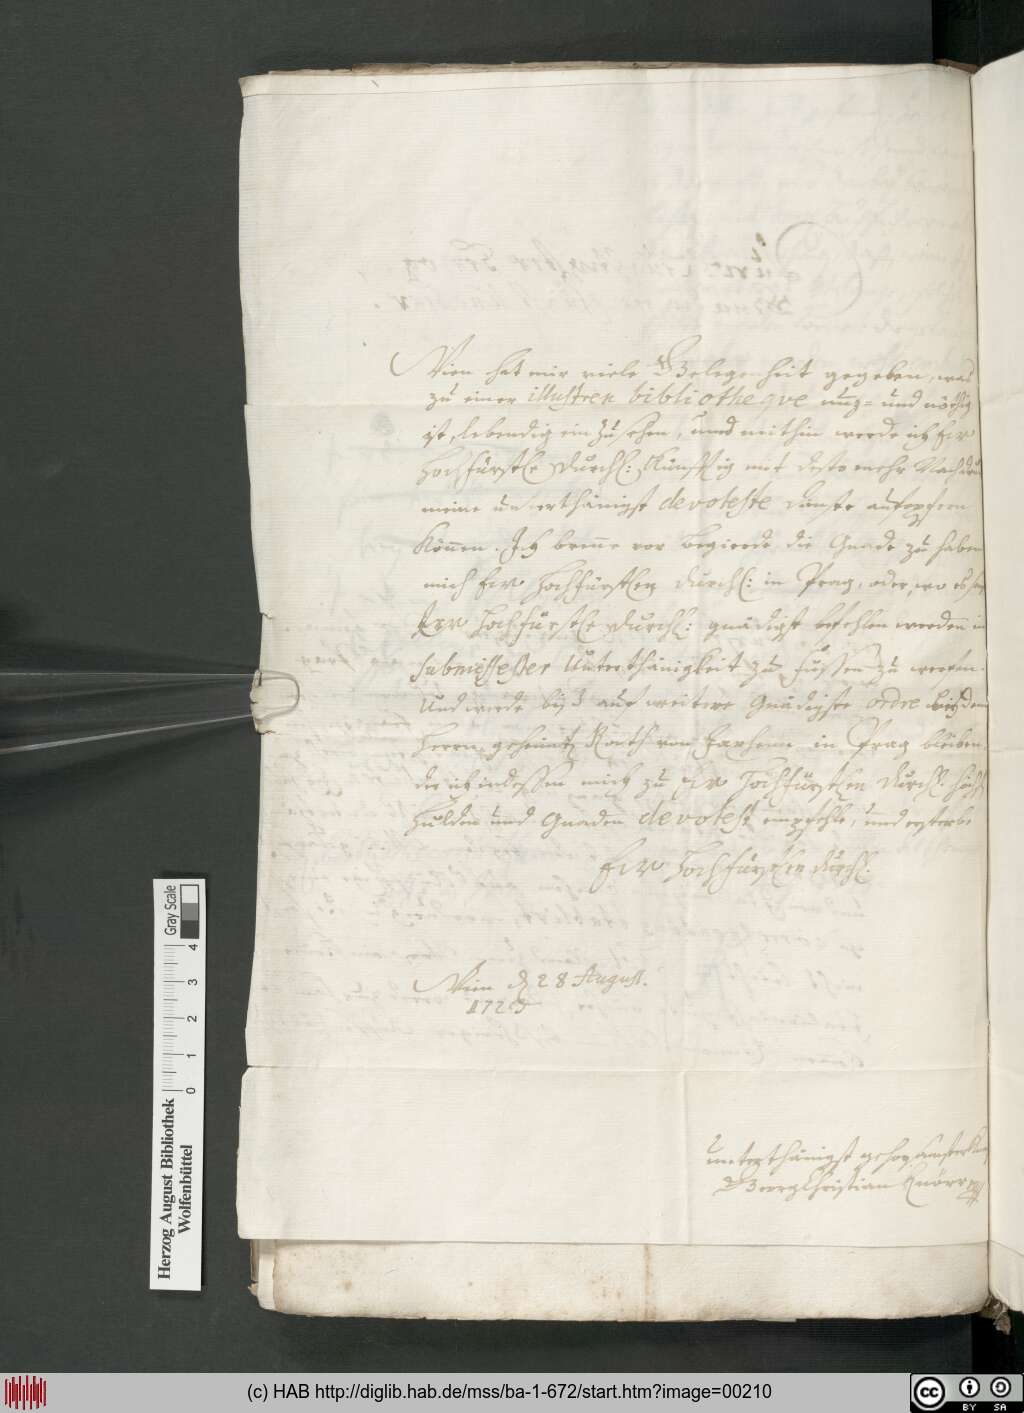 Wien hat mir viele Gelegenheit gegeben, was
zu einer illustren bibliotheqve nuz- und nöthig
ist, lebendig einzusehen, und mithin werde ich Ew
Hochfürstle Durchl: künfftig mit desto mehr Nachdruck
meine unterthänigst devoteste Dienste aufopfern
können. Ich brenne vor Begierde die Gnade zu haben
mich Ew Hochfürstlen Durchl: in Prag, oder, wo es sey
Ew Hochfürstle Durchl: gnädigst befehlen werden in
submissester Unterthänigkeit zu Füssen zu werffen.
Und werde biß auf weitere Gnädigste ordre bey dem
Herrn geheimbt Rath von in Prag bleiben,
der ich indessen mich zu Ew Hochfürstlen Durchl. höchst
Hulden und Gnaden devotest empfehle, und ersterbe
Ew Hochfürstlen Durchl.
Wien d 28 August.
1723
unterthänigst gehorsamster Knecht
Georg Christian Knörr
Herzog August Bibliothek
Wolfenbüttel
0 1 2 3 4
Gray Scale
(c) HAB http://diglib.hab.de/mss/ba-1-672/start.htm?image=00210
cc BY SA